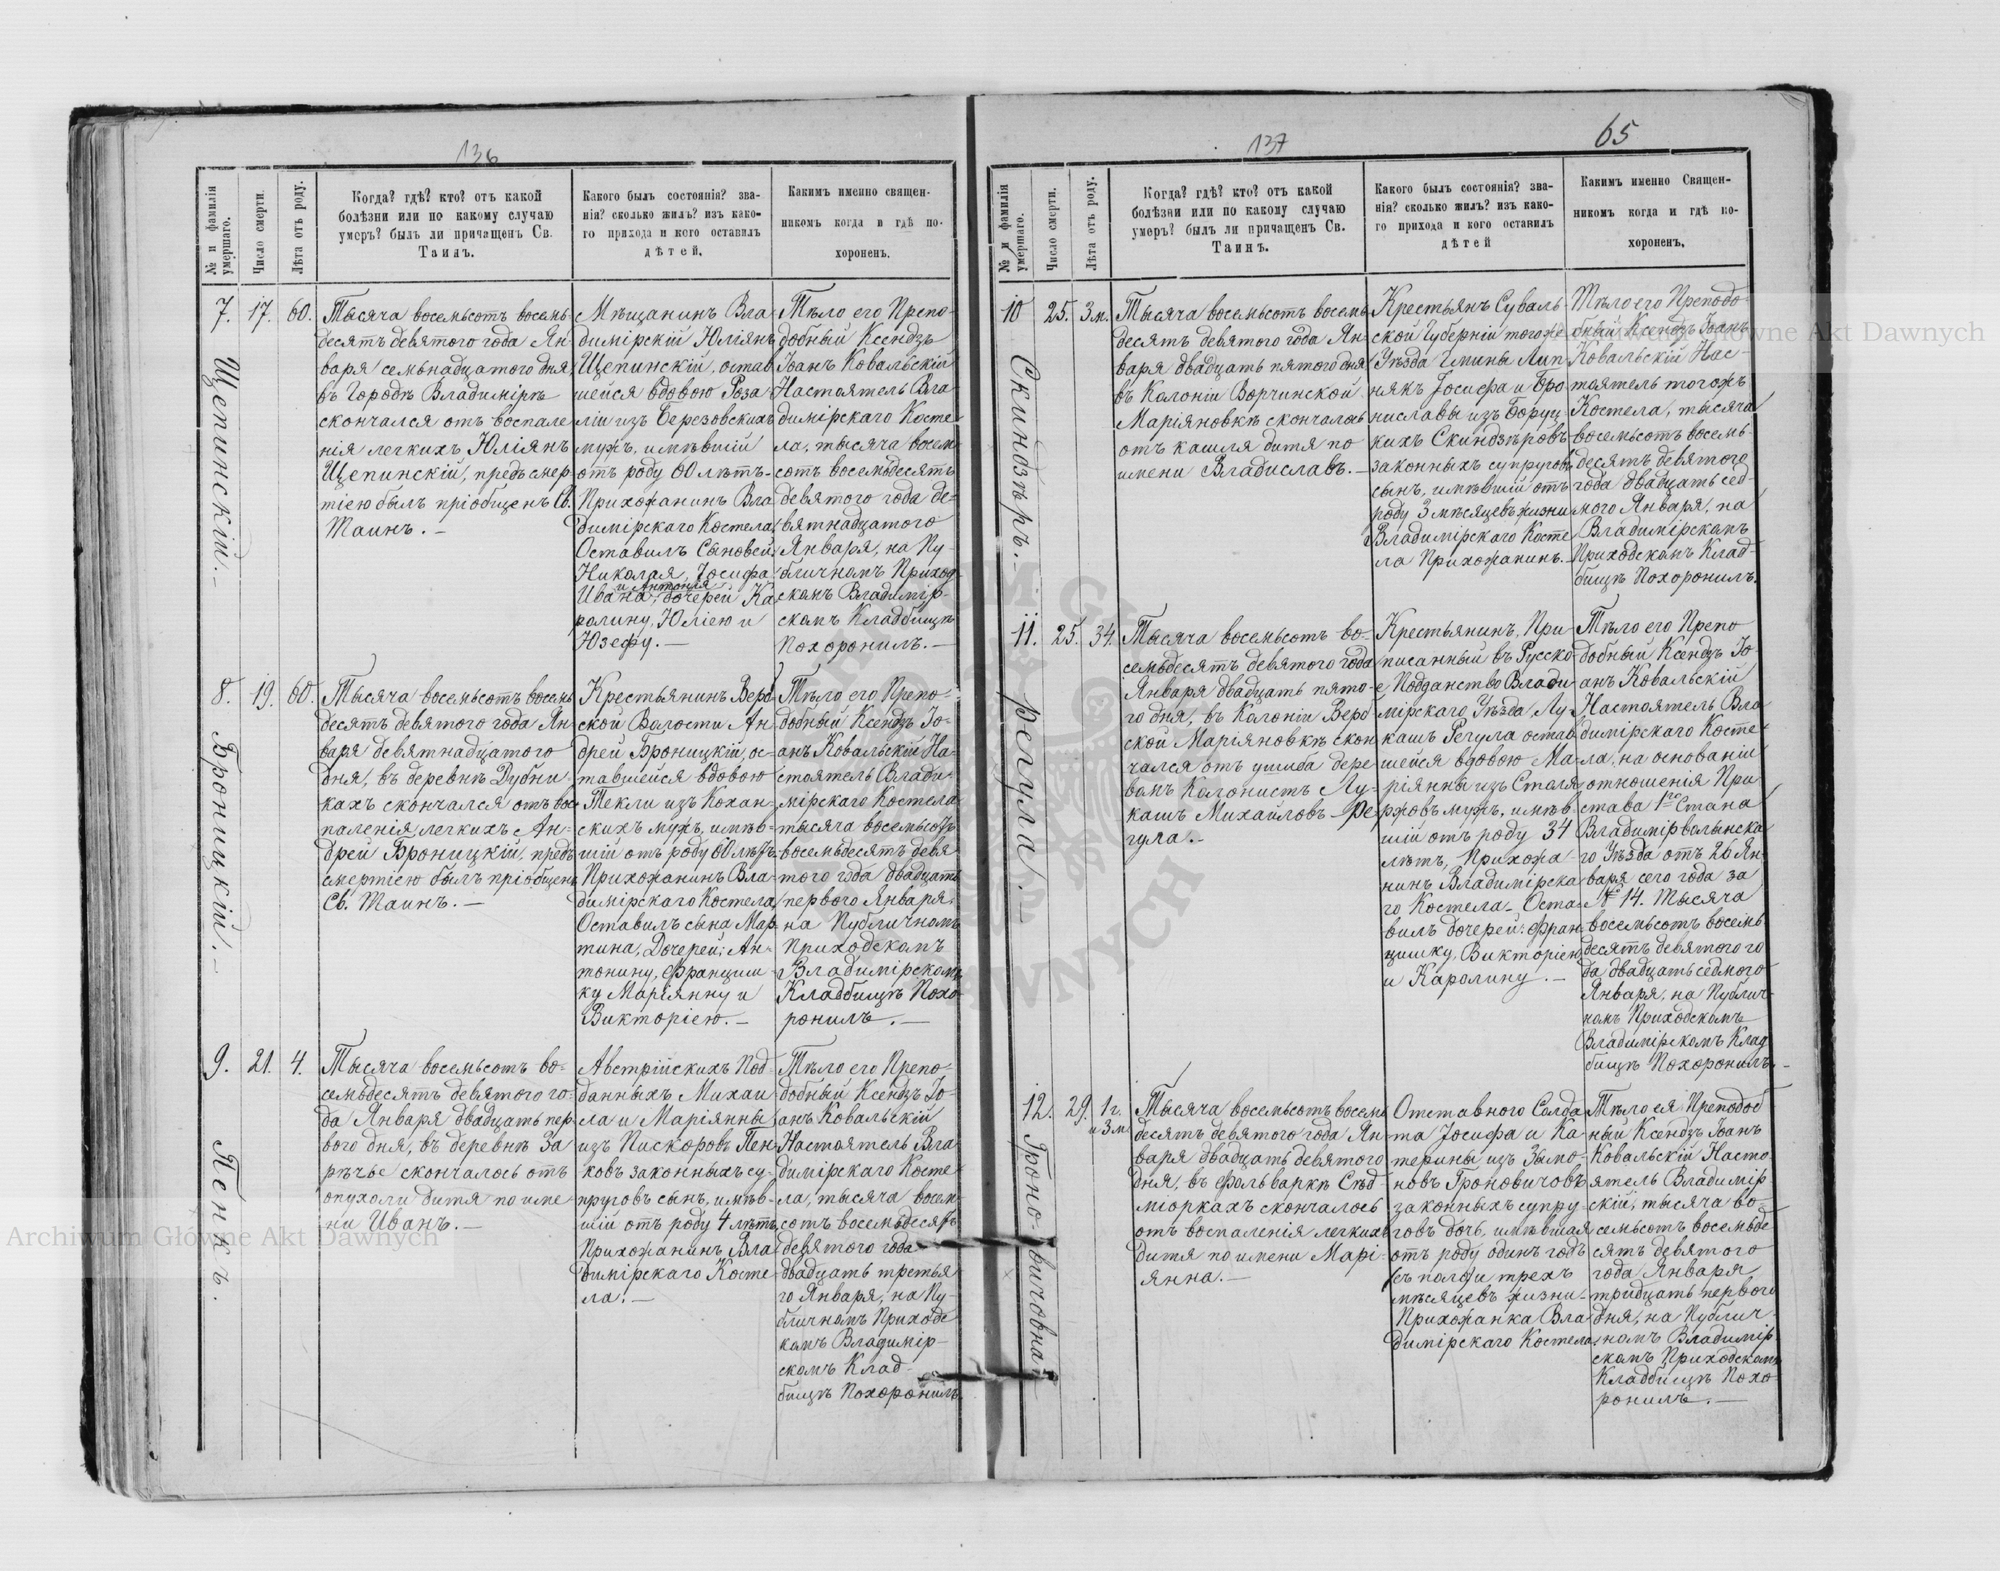 136
№ и фамилія умершаго.
Число смерти.
Лѣта отъ роду.
Когда? гдѣ? кто? отъ какой
болѣзни или по какому случаю
умеръ? былъ ли причащенъ Св.
Таинъ.
Какого былъ состоянія? зва-
нія? сколько жилъ? изъ како-
го прихода и кого оставилъ
дѣтей.
Какимъ именно священ-
никомъ когда и гдѣ по-
хороненъ.
7.
Щепинскій.—
17.
60.
Тысяча восемьсотъ восемь
десятъ девятого года Ян
варя семьнадцатого дня
въ Городѣ Владимірѣ
скончался отъ воспале
нія легкихъ Юліянъ
Щепинскій, предъ смер
тіею былъ пріобщенъ Св.
Таинъ.—
Мѣщанинъ Вла
димірскій Юліянъ
Щепинскій, остав
шейся вдовою Роза
ліи изъ Березовскихъ
мужъ, имѣвшій
отъ роду 60 лѣтъ.
Прихожанинъ Вла
димірскаго Костела
Оставилъ Сыновей
Николая, Іосифа
и Антонія
Ивана, дочерей Ка
ролину, Юліею и
Юзефу.—
Тѣло его Препо-
добный Ксендзъ
Іоанъ Ковальскій
Настоятель Вла
димірскаго Косте
ла, тысяча восем
сотъ восемьдесятъ
девятого года де-
вятнадцатого
Января, на Пу-
бличномъ Приход
скомъ Владимір-
скомъ Кладбищѣ
Похоронилъ.—
8.
Броницкій.—
19.
60.
Тысяча восемьсотъ восемь
десятъ девятого года Ян
варя девятнадцатого
дня, въ деревнѣ Дубни-
кахъ скончался отъ вос
паленія легкихъ Ан-
дрей Броницкій, предъ
смертіею былъ пріобщенъ
Св. Таинъ.—
Крестьянинъ Верб
ской Волости Ан
дрей Броницкій, ос-
тавшейся вдовою
Текли изъ Кохан-
скихъ мужъ, имѣв-
шій отъ роду 60 лѣтъ
Прихожанинъ Вла-
димірскаго Костела
Оставилъ сына Мар
тина, Дочерей: Ан-
тонину, Франциш
ку Маріянну и
Викторіею.—
Тѣло его Препо-
добный Ксендзъ Іо-
анъ Ковальскій На-
стоятель Влади-
мірскаго Костела
тысяча восемьсотъ
восемьдесятъ девя
того года двадцать
первого Января,
на Публичномъ
Приходскомъ
Владимірскомъ
Кладбищѣ Похо-
ронилъ.—
9.
Пенкъ.
21.
4.
Тысяча восемьсотъ во-
семьдесятъ девятого го-
да Января двадцать пер
вого дня, въ деревнѣ За
рѣчье скончалось отъ
опухоли дитя по име
ни Иванъ.—
Австрійскихъ Под-
данныхъ Михаи
ла и Маріянны
изъ Паскоровъ Пен
ковъ законныхъ су-
пруговъ сынъ, имѣв-
шій отъ роду 4 лѣтъ
Прихожанинъ Вла
димірскаго Косте
ла.—
Тѣло его Препо-
добный Ксендзъ Іо-
анъ Ковальскій
Настоятель Вла
димірскаго Косте
ла, тысяча восем
сотъ восемьдесятъ
девятого года
двадцать третья
го Января, на Пу-
бличномъ Приходс
комъ Владимір-
скомъ Клад-
бищѣ Похоронилъ
137
65
№ и фамилія умершаго.
Число смерти.
Лѣта отъ роду.
Когда? гдѣ? кто? отъ какой
болѣзни или по какому случаю
умеръ? былъ ли причащенъ Св.
Таинъ.
Какого былъ состоянія? зва-
нія? сколько жилъ? изъ како-
го прихода и кого оставилъ
дѣтей
Какимъ именно Священ-
никомъ когда и гдѣ по-
хороненъ.
10
Скиндзѣръ.—
25.
3м.
Тысяча восемьсотъ восемь
десятъ девятого года Ян-
варя двадцать пятого дня
въ Колоніи Ворчинской
Маріяновкѣ скончалось
отъ кашля дитя по
имени Владиславъ.—
Крестьянъ Суваль-
ской Губерній тогоже
Уѣзда Гмины Лип-
някъ Іосифа и Бро
ниславы изъ Боруц-
кихъ Скиндзѣровъ
законныхъ супруговъ
сынъ, имѣвшій отъ
роду 3 мѣсяцевъ жизни
Владимірскаго Косте
ла Прихожанинъ.—
Тѣло его Преподо-
бный Ксендзъ Іоанъ
Ковальскій Нас-
тоятель тогожъ
Костела, тысяча
восемьсотъ восемь-
десятъ девятого
года двадцать сед-
мого Января, на
Владимірскомъ
Приходскомъ Клад-
бищѣ Похоронилъ.
11.
Регула.—
25.
34.
Тысяча восемьсотъ во-
семьдесятъ девятого года
Января двадцать пято-
го дня, въ Колоніи Верб
ской Маріяновкѣ скон
чался отъ ушиба дере
вомъ Колонистъ Лу-
кашъ Михайловъ Ре-
гула.—
Крестьянинъ, При-
писанный въ Русско-
е Подданство Влади-
мірскаго Уѣзда, Лу-
кашъ Регула остав
шейся вдовою Ма-
ріянны изъ Столя
ржовъ мужъ, имѣв
шій отъ роду 34
лѣтъ, Прихожа
нинъ Владимірска
го Костела—Оста-
вилъ дочерей: Фран-
цишку, Викторіею
и Каролину.—
Тѣло его Препо
добный Ксендзъ Іо
анъ Ковальскій
Настоятель Вла
димірскаго Косте-
ла, на основаніи
отношенія При
става 1го Стана
Владимірволынска
го Уѣзда отъ 26 Ян-
варя сего года за
№ 14. Тысяча
восемьсотъ восемь
десятъ девятого го
да двадцать седмого
Января, на Публич-
номъ Приходскомъ
Владимірскомъ Клад
бищѣ Похоронилъ.—
12.
Гроновичовна
29.
1 г.
и 3 м.
Тысяча восемьсотъ восемь
десятъ девятого года Ян
варя двадцать девятого
дня, въ фольваркѣ Сѣд-
міоркахъ скончалось
отъ воспаленія легкихъ
дитя по имени Марі-
янна.—
Отставного Солда
та Іосифа и Ка
терины изъ Зымо-
новъ Гроновичовъ
законныхъ супру-
говъ дочь, имѣвшая
отъ роду одинъ годъ
мѣсяцевъ жизни—
Прихожанка Вла-
димірскаго Костела.
Тѣло ея Преподоб
ный Ксендзъ Іоанъ
Ковальскій Насто-
ятель Владимір
скій, тысяча во-
семьсотъ восемьде
сятъ девятого
года Января
тридцать первого
дня, на Публич-
номъ Владимір
скомъ Приходскомъ
Кладбищѣ Похо-
ронилъ.—
Archiwum Główne Akt Dawnych
Główne Akt Dawnych